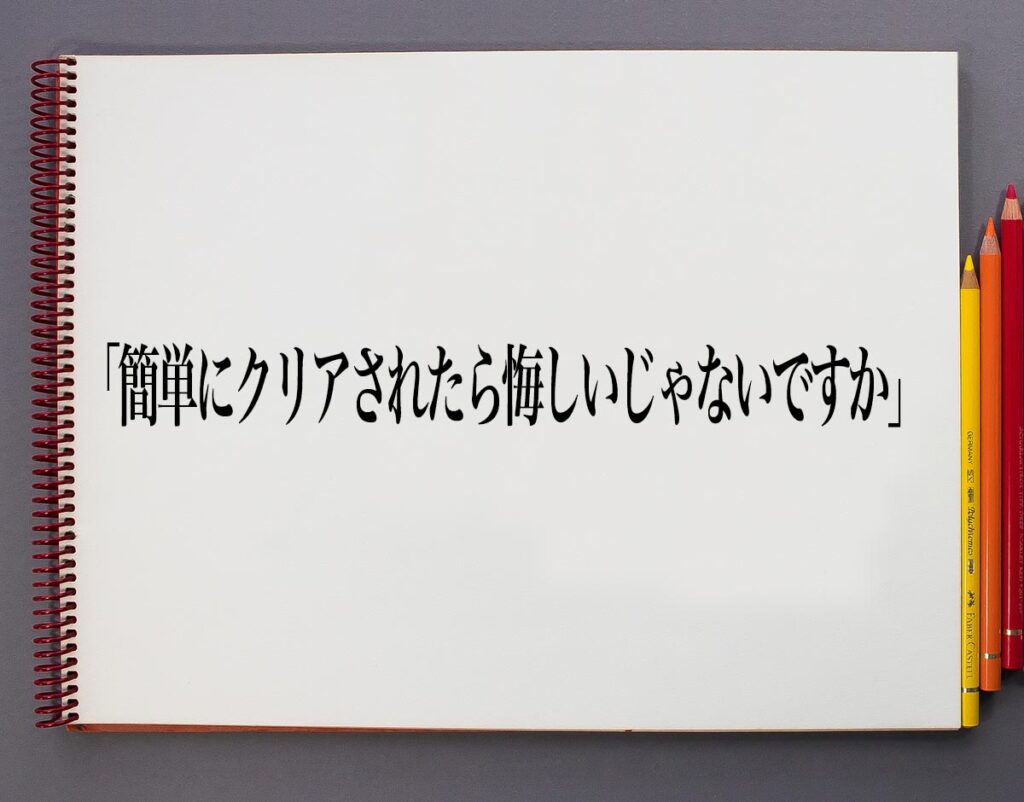 「簡単にクリアされたら悔しいじゃないですか」
GERMANY
Polychromos
FABER CASTELL